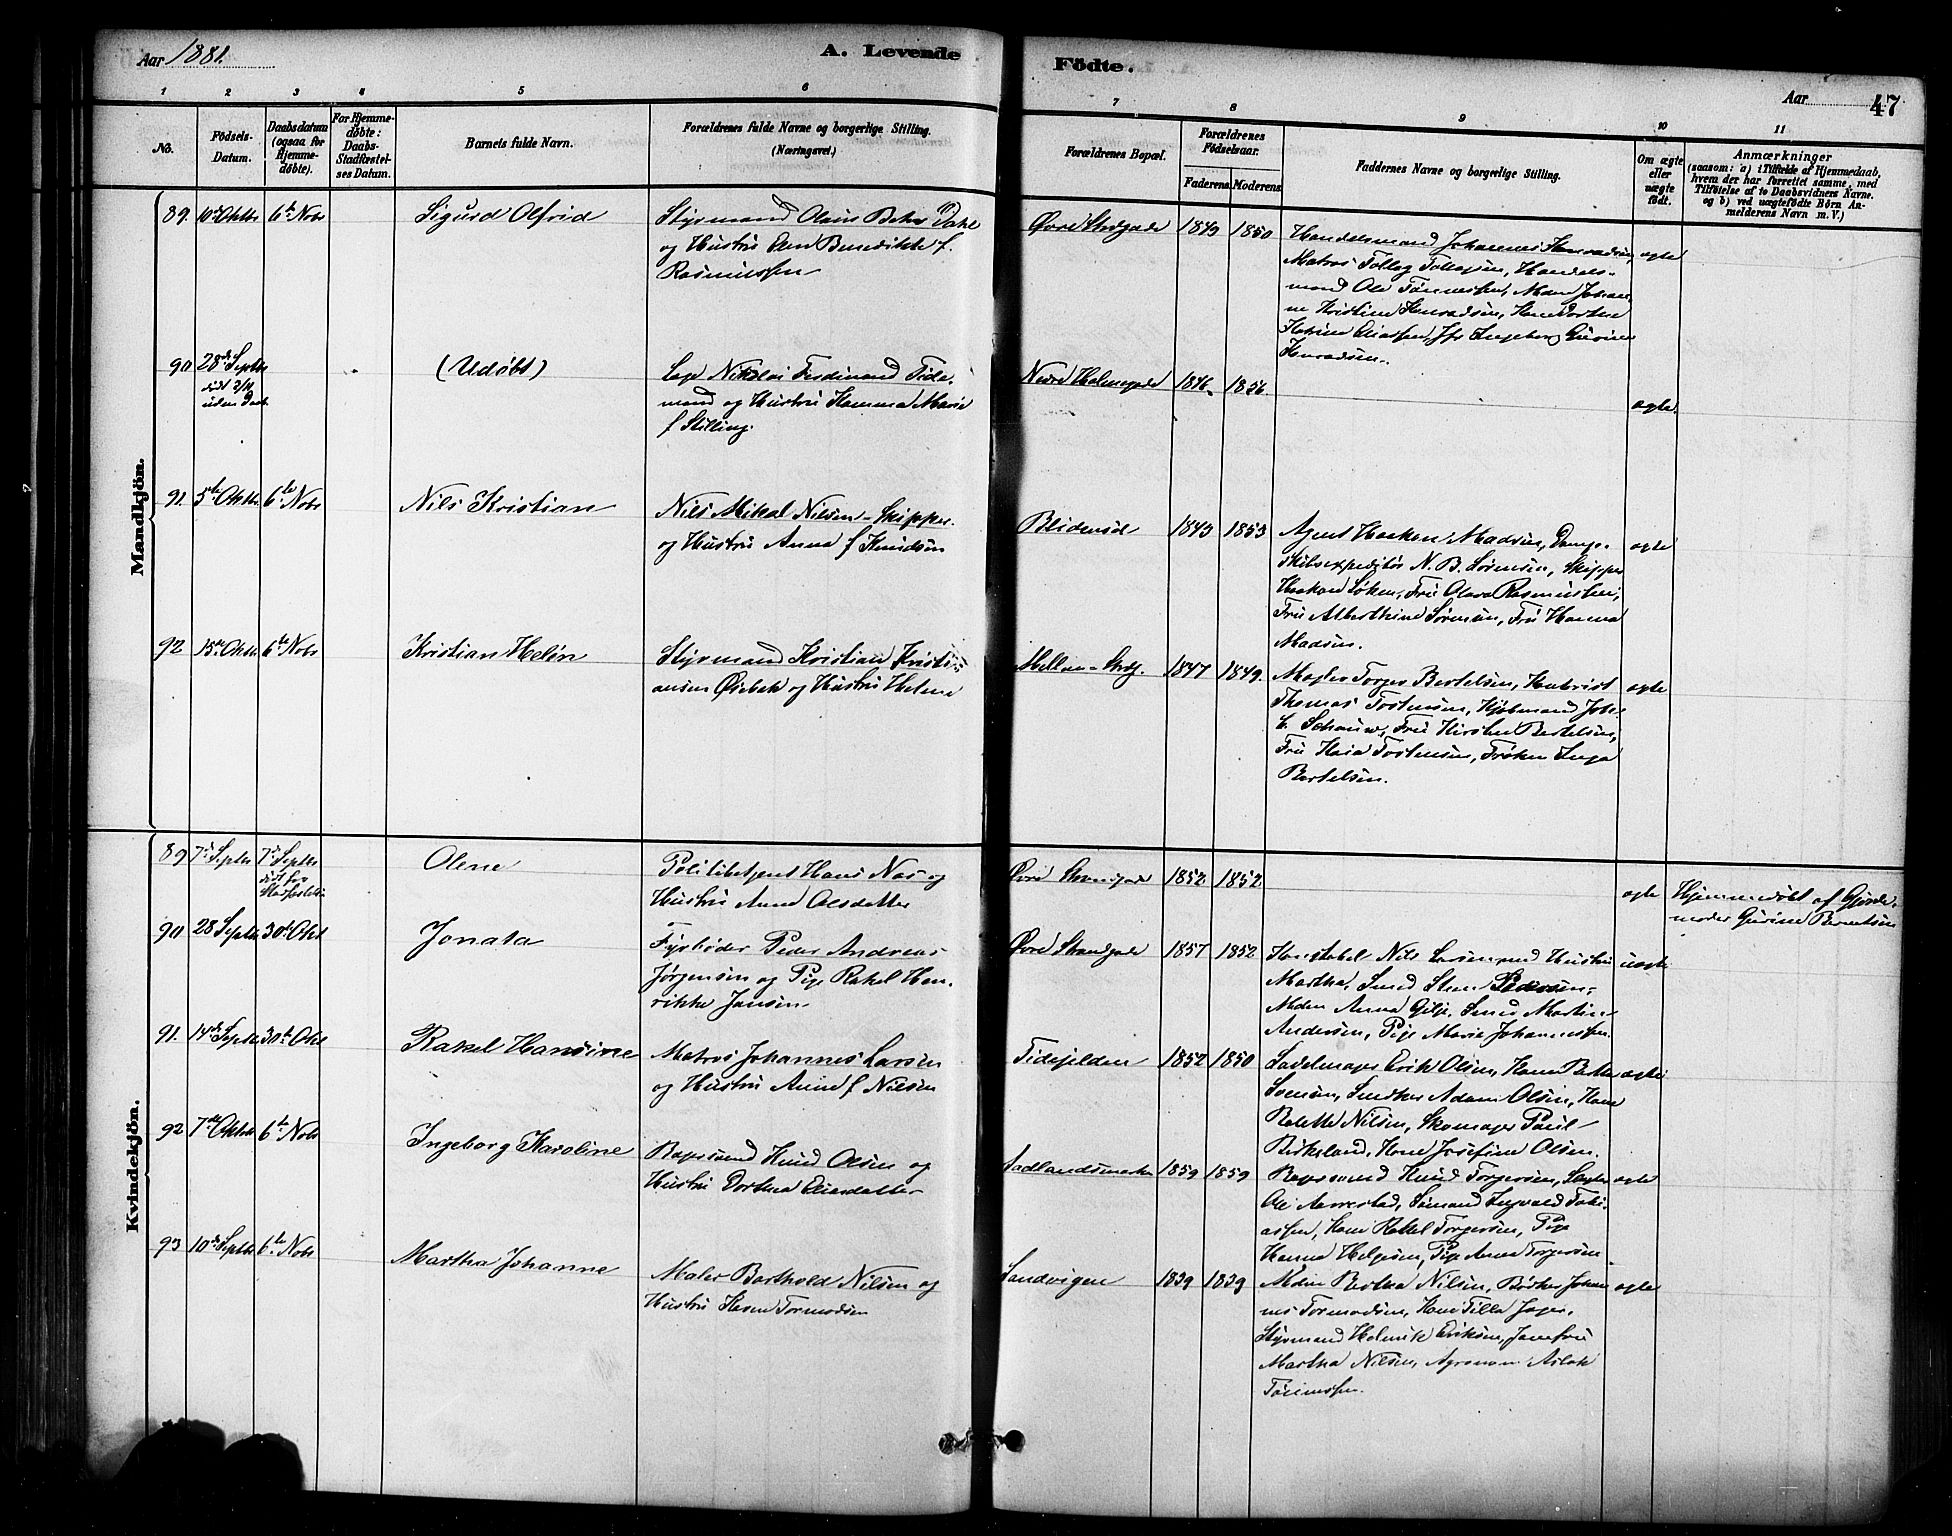 Aar 1881.
A. Levende
Fødte.
Aar
47
1
2
3
4
5
6
7
8
9
10
11
No.
Fødsels-
Datum.
Daabsdatum
(ogsaa for
Hjemme-
døbte).
For Hjemme-
døbte:
Daabs-
Stadfæstel-
ses Datum.
Barnets fulde Navn.
Forældrenes fulde Navne og borgerlige Stilling.
(Næringsvei.)
Forældrenes Bopæl.
Forældrenes
Fødselsaar.
Faderens.
Moderens.
Faddernes Navne og borgerlige Stilling.
Om ægte
eller
uægte
født.
Anmærkninger
(saasom: a) i Tilfælde af Hjemmedaab,
hvem der har forrettet samme, med
Tilføielse af to Daabsvidners Navne.
og b) ved uægtefødte Børn An-
melderens Navn m. V.)
Mandkjön.
89. 10de Oktbr 6te Nobr
Sigurd Alfrid
Styrmand Olaus Dahl
og Hustru Ane Benedikte f.
Rasmussen
Øvre Strdgade 1849 1850
Handelsmand Johannes
Matros Tollag Tollagsen, Handels-
mand Ole Tønnessen, Mdm Johan-
ne Kristine Konradsen, Kone Dorthea
Katrine Eliassen, Jfr Ingeborg Gurine
Konradsen.
ægte
90 28de Septbr
død 3/10
uden Daab
(Udøbt)
Nikolai Ferdinand Tide-
mand og Hustru Hanna Marie
f Stilling.
Nedre Holmegade 1846 1856.
ægte.
91. 5te Oktbr 6te Nobr
Nils Kristian
Nils Mikal Nilsen - Skipper
og Hustru Anna f Knudsen
Blidensol 1843 1853
Agent Haakon Madsen, Damp-
skibsexpeditør N. B. Sørensen, Skipper
Haakon Løken, Fru Olava Rasmussen,
Fru Alberthine Sørensen, Fru Hanna
Madsen.
ægte
92 15de Oktbr 6te Nobr
Kristian Helin
Styrmand Kristian Kristi-
ansen og Hustru Helene
Mellem-Strdg. 1847 1849.
Mægler Torger Bertelsen,
Thomas Tostensen, Kjøbmand Joh.
C. Schouw, Fru Kirsten Bertelsen,
Fru Tostensen, Frøken Inga
Bertelsen.
ægte
Kvindekjön.
89 7de Septbr 7de Septbr
død før
Stadfæstelsen
Olene
Politibetjent Hans Næs og
Hustru Anne Olsdatter
Øvre Strandgade 1852 1852
ægte
Hjemmedøbt af Gjorde-
moder Gurine Berntsen
90 28 Septbr 30te Okt
Jonata
Fyrbøder Peder Andreas
Jørgensen og Pige Rakel Hen-
rikke Jansen
Øvre Strandgade 1857 1852
Konstabel Nils Larsen med Hustru
Martha, Smed Sven Pedersen,
Mdm Anna Gilje, Smed Martin
Andersen, Pige Marie Johannessen.
uægte
91. 14de Septbr 30te Okt
Rakel Hansine
Matros Johannes Larsen
og Hustru Anne f Nilsen
Tidefjelden 1852 1850
Sadelmager Erik Olsen, Kone Berthe
Svensen, Snedker Adam Olsen, Kone
Nilsen, Skomager Poul
Birkeland, Kone Josefine Olsen.
ægte
92 7de Oktbr 6te Nobr
Ingeborg Karoline
Knud Olsen og
Hustru Dorthea Eliasdatter
Sadlandsmarken 1859 1859
Knud Torgersen,
Ole Aarrestad, Sømand Ingvald Tobi-
assen, Kone Rakel Torgersen, Pige
Hanna Helgesen, Pige Anna Torgersen
ægte
93 10de Septbr 6te Nobr
Martha Johanne
Maler Barthold Nilsen og
Hustru Karen Tormodsen
Sandvigen 1839 1839
Mdm Bertha Nilsen, Bødker Johan-
nes Tormodsen, Kone Tilla Jager,
Styrmand Henrik Eriksen, Jomfru
Martha Nilsen, Agronom Aslak
Tønnessen.
ægte